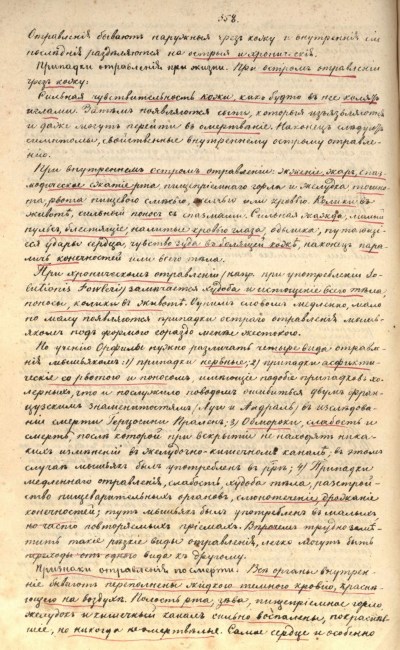 558.
Отравленія бываютъ наружныя чрезъ кожу и внутреннія сіи
послѣднія раздѣляются на острыя и хроническія.
Припадки отравленія при жизни. При остромъ отравленіи
чрезъ кожу:
Сильная чувствительность кожи, какъ будто въ нее колятъ
иглами. Затѣмъ появляются сыпи, которыя изъязвляются
и даже могутъ перейти въ омертвѣніе. Наконецъ слѣдуютъ
симптомы, свойственные внутреннему острому отравле-
нію.
При внутреннемъ остромъ отравленіи: жженіе, жаръ, спаз-
модическое сжатіе рта, пищепріемнаго горла и желудка тошно-
та, рвота пищевого слизью, желчью или кровію. Колики въ
животѣ, сильный поносъ съ спазмами. Сильная жажда, малый
пульсъ, блестящіе, налитые кровію глаза, одышка, путающіе-
ся удары сердца, чувство зуда въ болящей кожѣ, наконецъ пара-
личъ конечностей или всего тѣла.
При хроническомъ отравленіи (напр. при употребленіи So-
lutionis Fowleri) замѣчается худоба и истощеніе всего тѣла,
поносы, колики въ животѣ. Однимъ словомъ медленно, мало
по малу появляются припадки остраго отравленія мышь-
якомъ подъ формою гораздо менѣе жестокою.
По ученію Орфилы нужно различать четыре вида отравле-
нія мышьякомъ: 1) припадки нервные; 2) припадки асфикти-
ческіе со рвотою и поносомъ, имѣющіе подобіе припадковъ хо-
лерныхъ, что и послужило поводомъ ошибиться двумъ фран-
цузскимъ знаменитостямъ (Луи и Андраль) въ изслѣдова-
ніи смерти Герцогини Пралонъ; 3) Обмороки, слабость и
смерть, послѣ которой при вскрытіи не находятъ ника-
кихъ измѣненій въ желудочно-кишечномъ каналѣ; въ этомъ
случаѣ мышьякъ былъ употребленъ въ 4) Припадки
медленнаго отравленія, слабость, худоба тѣла, разстрой-
ство пищеварительныхъ органовъ, слюнотеченіе, дрожаніе
конечностей; тутъ мышьякъ былъ употребленъ въ маломъ
но часто повторяемыхъ пріемахъ. Впрочемъ трудно замѣ-
тить такіе рѣзкіе виды отравленія, легко могутъ быть
переходы отъ одного вида къ другому.
Признаки отравленія по смерти: Всѣ органы внутрен-
ніе бываютъ переполнены жидкою темною кровію, краснѣ-
ющею на воздухѣ. Полость рта, зѣва, пищепріемное горло
желудокъ и кишечный каналъ сильно воспалены, покраснѣв-
шіе, но никогда не омертвѣлые. Самое сердце и особенно